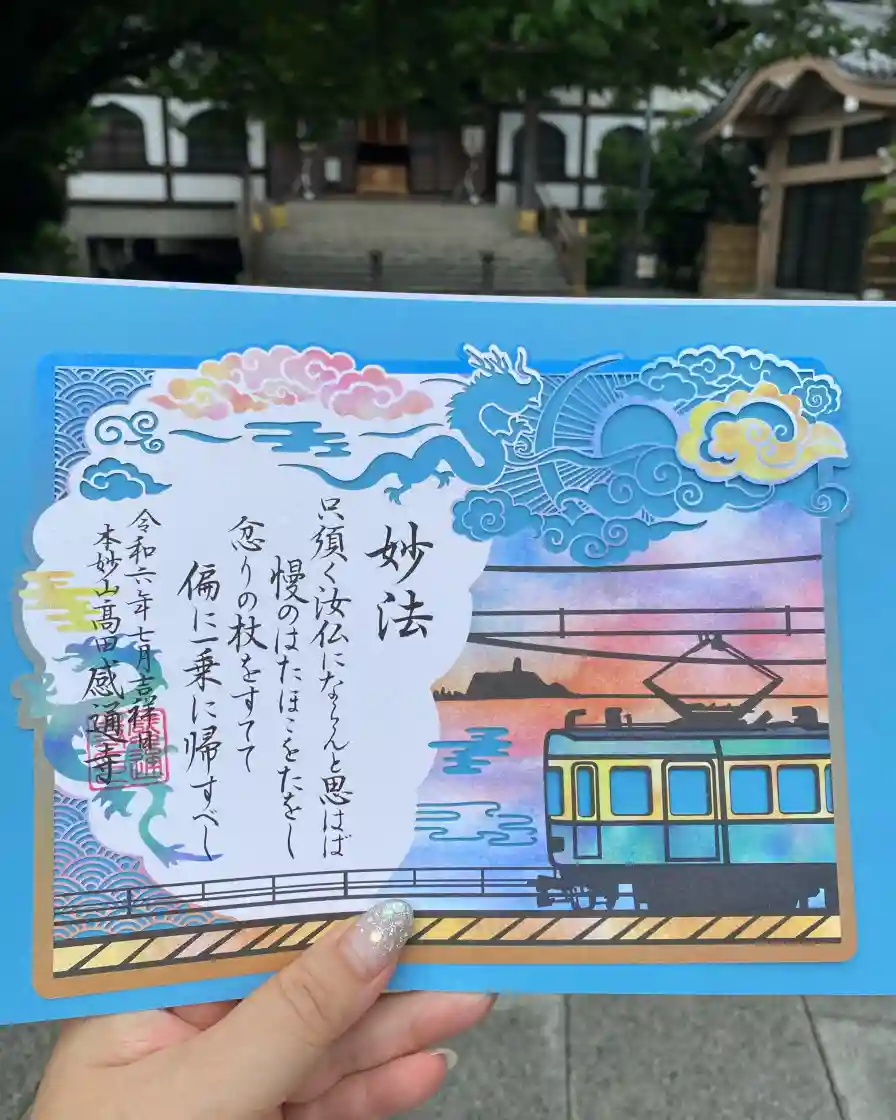 妙法
只須く汝仏にならんと思はば
慢のはたほこをたをし
忿りの杖をすてて
偏に一乗に帰すべし
令和六年七月吉祥日
本妙山高田感通寺